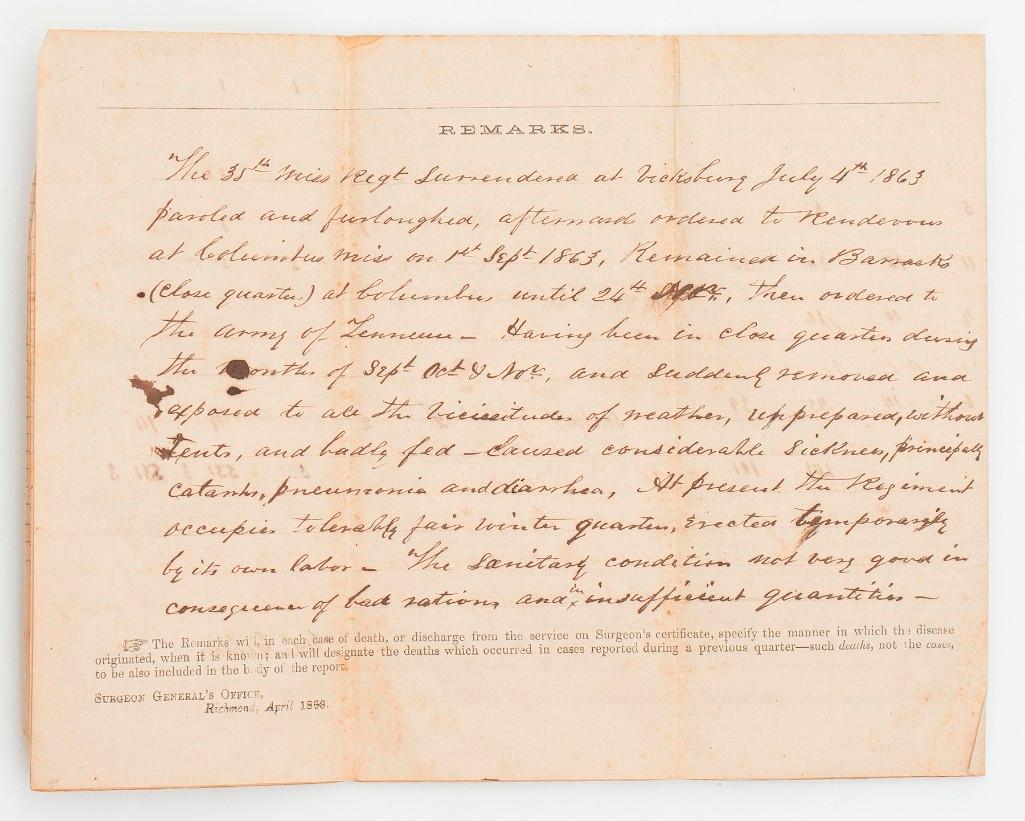 REMARKS.
The 35th Miss Regt Surrendered at Vicksburg July 4th 1863
paroled and furloughed, afterward ordered to Rendevous
at Columbus Miss on 1st Sept 1863, Remained in Barracks
(close quarters) at Columbus until 24th, Then ordered to
the army of Tennessee – Having been in close quarters during
the months of Sept Oct & Nov, and suddenly removed and
exposed to all the vicissitudes of weather, unprepared, without
Tents, and badly fed – Caused considerable Sickness, principally
catarrhs, pneumonia and diarrhea, At present the Regiment
occupies tolerably fair winter quarters, Erected temporarily
by its own labor – The Sanitary condition not very good in
consequence of bad rations and in insufficient quantities –
☞ The Remarks will, in each case of death, or discharge from the service on Surgeon's certificate, specify the manner in which the disease
originated, when it is known; and will designate the deaths which occurred in cases reported during a previous quarter—such deaths, not the cases,
to be also included in the body of the report.
SURGEON GENERAL'S OFFICE,
Richmond, April 1863.